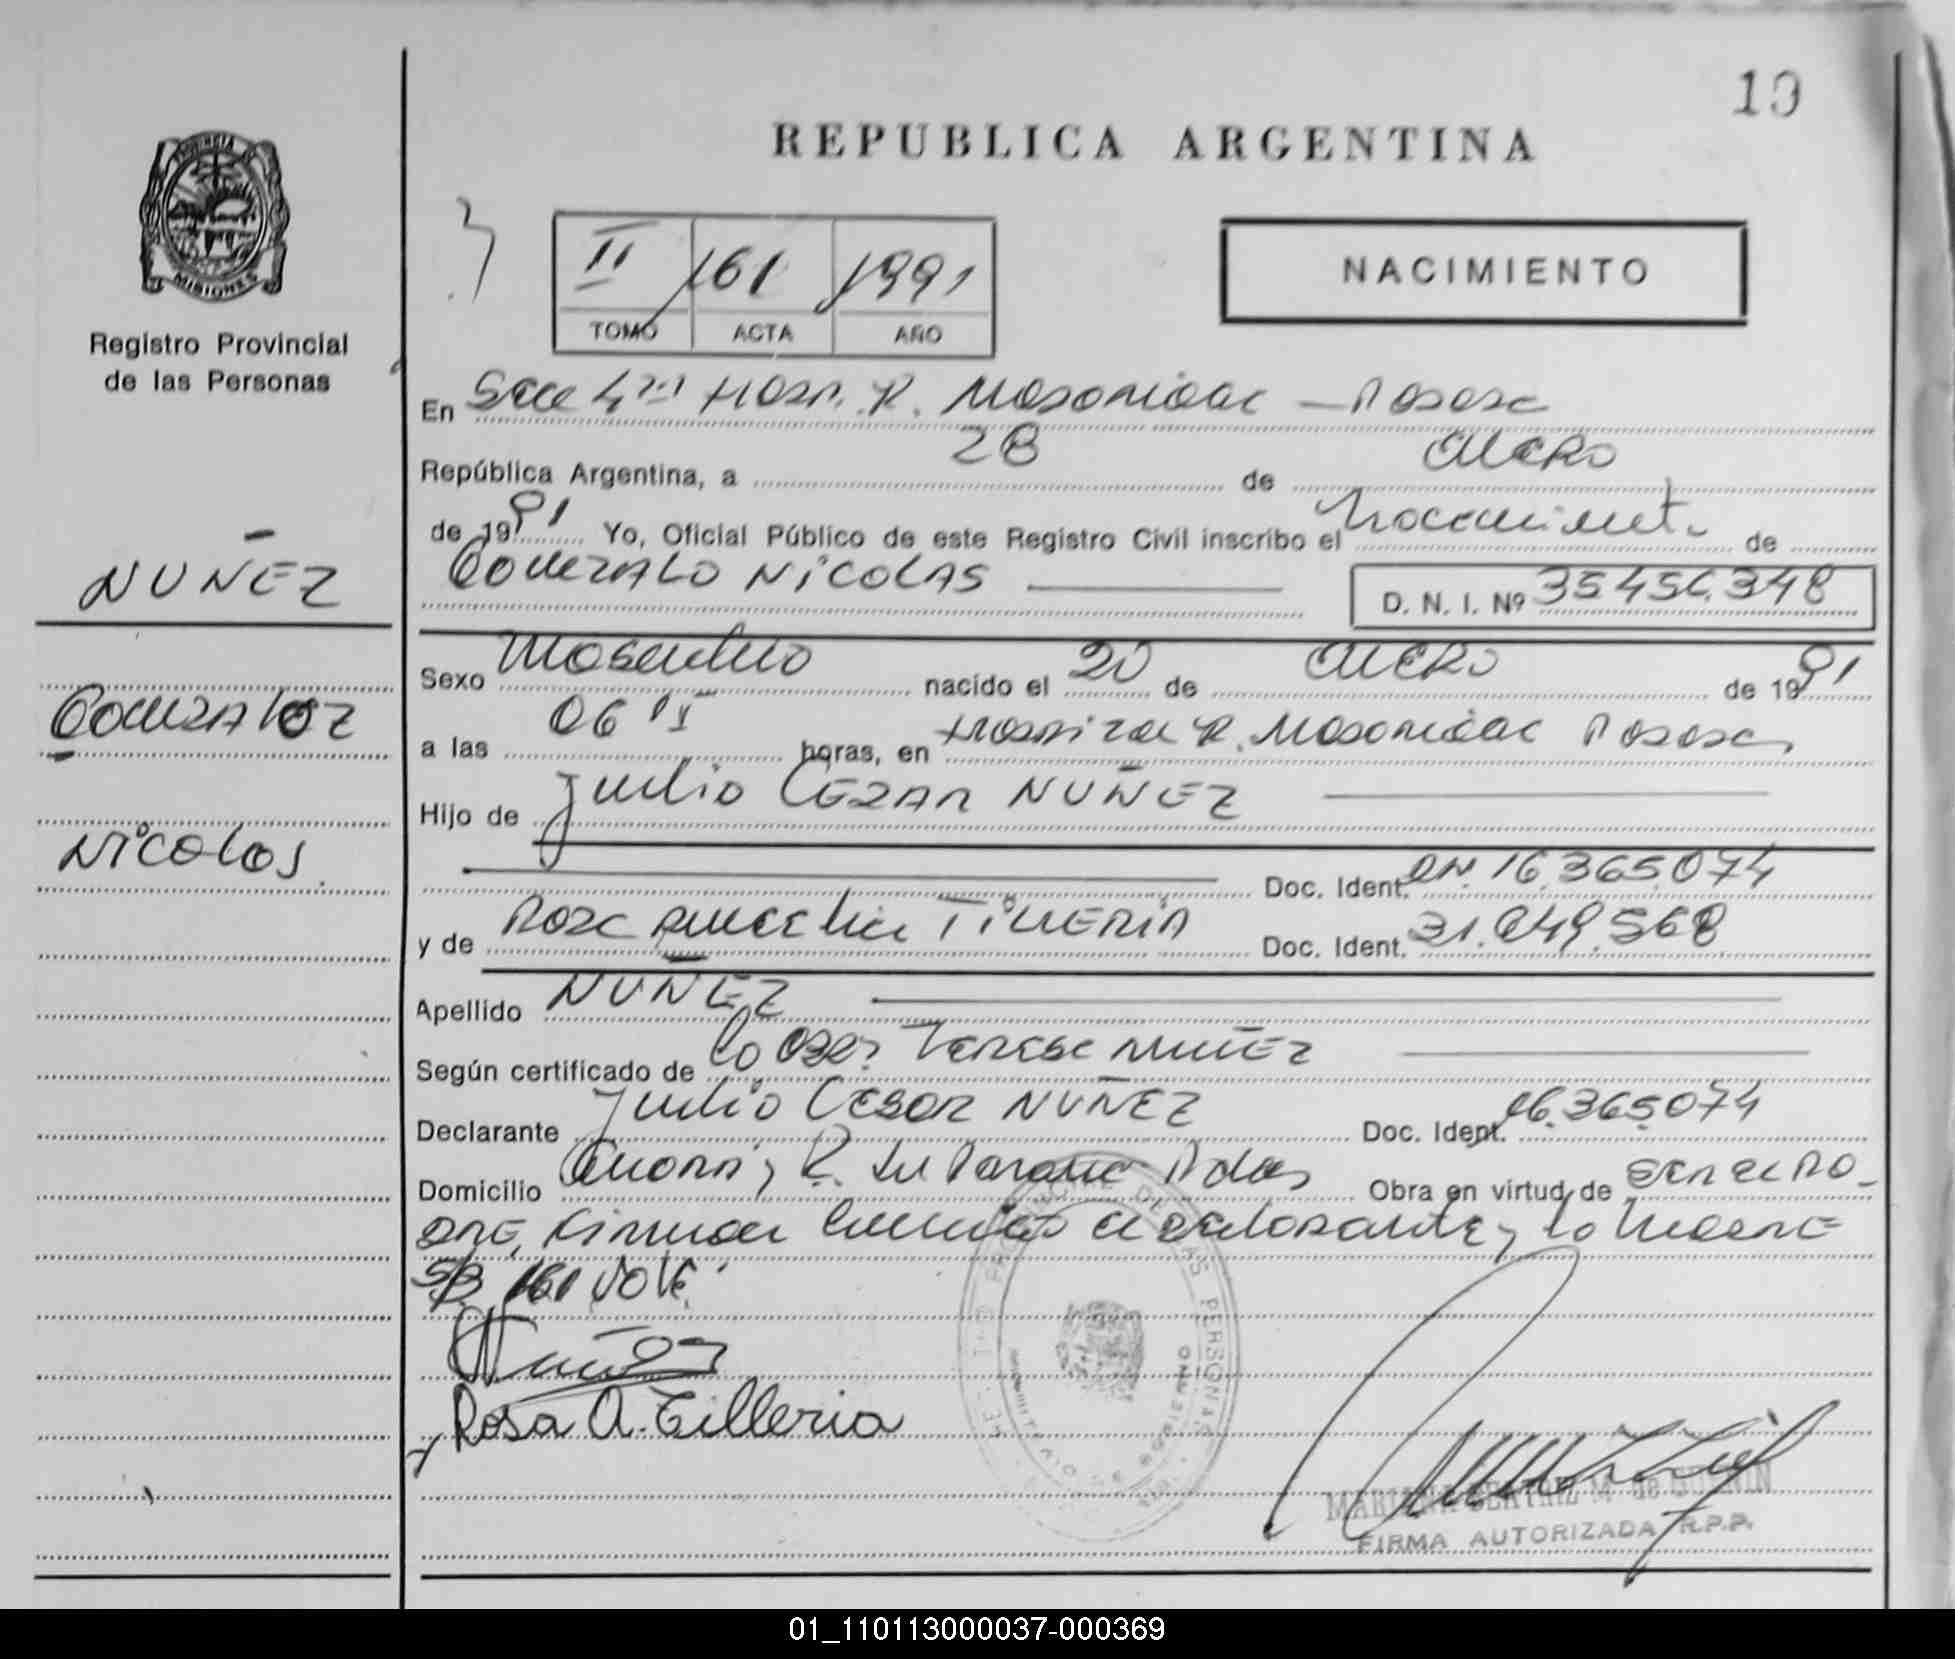 10
REPUBLICA ARGENTINA
PROVINCIA DE
MISIONES
Registro Provincial
de las Personas
II 161 1991
TOMO ACTA AÑO
NACIMIENTO
En Secc 4ta Hosp. R. Madariaga — Posadas
República Argentina, a 28 de enero
de 1991 Yo, Oficial Público de este Registro Civil inscribo el Nacimiento de
GONZALO NICOLAS D. N. I. Nº 35.456.348
NUÑEZ
Gonzalo
Nicolas
Sexo Masculino nacido el 20 de enero de 1991
a las 06 horas, en Hospital R. Madariaga Posadas
Hijo de Julio CEZAR NUÑEZ
Doc. Ident. 16.365.074
y de Rosa TILLERIA Doc. Ident. 568
Apellido NUÑEZ
Según certificado de Teresa NUÑEZ
Declarante Julio Cesar NUÑEZ Doc. Ident. 16.365.074
Domicilio Obra en virtud de
el declarante y la madre
161 VALE
Nuñez
Rosa A. Tilleria
FIRMA AUTORIZADA R.P.P.
01_110113000037-000369